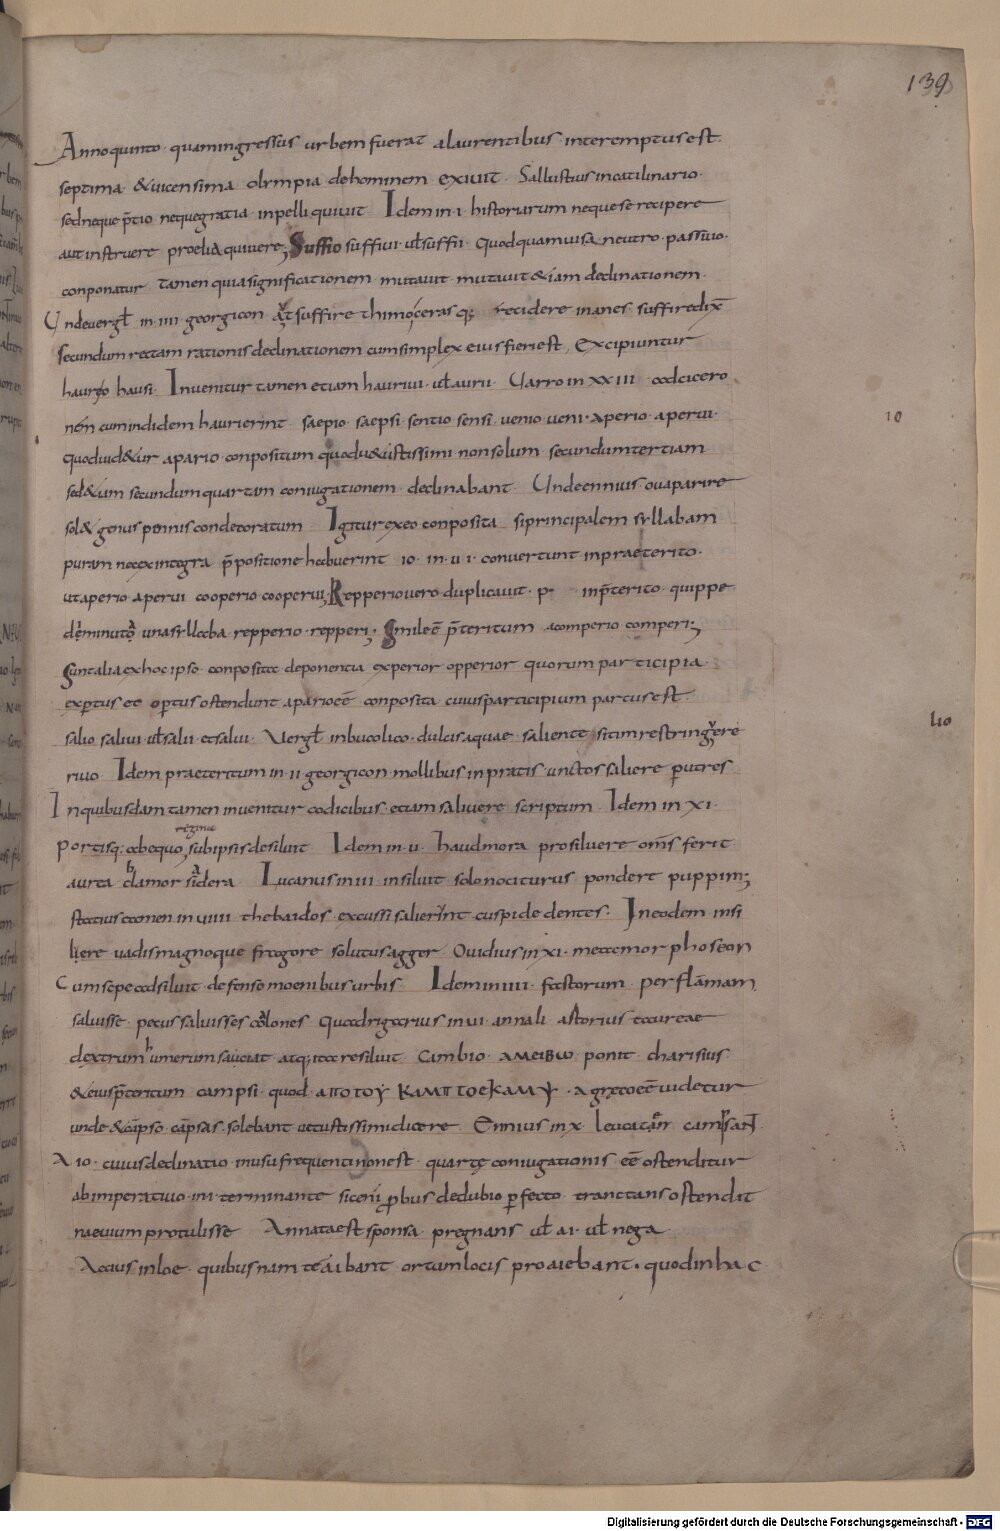 139
Anno quinto · quam ingressus urbem fuerat a laurentibus · interemptus est.
septima · & vicensima olympia de hominem exivit · Sallustius in catilinario ·
sed neque p̄tio neque gratia inpelli quivit Idem in · i · historiarum neque se recipere
aut instruere proelia quivere; Suffio suffivi · ut̄ suffii · quod quamvis a neutro · passivo ·
conponatur tamen quia significationem mutavit · mutavit & iam declinationem ·
Unde vergl̄ in · iiii georgicon suffire thimo, ceras q; recidere inanes · suffire dix̄
secundum rectam rationis declinationem cum simplex eius fieri est, Excipiuntur
haurio hausi · Invenitur tamen etiam haurivi · ut̄ aurii · Varro in xxiii · cicero
non cum indidem haurierint saepio saepsi · sentio sensi · venio veni · aperio · aperui ·
quod vid&ur apario · conpositum quod v&ustissimi non solum secundum tertiam
sed &iam secundum quartam coniugationem declinabant Unde ennius ova parire
sol& genus pennis condecoratum Igitur ex eo conposita si principalem syllabam
puram nec ex integra p̄positione habuerint io · in · ui · convertunt in praeterito ·
ut aperio aperui cooperio cooperui; Repperio vero duplicavit · p · in p̄terito · quippe
una syllaba · repperio · repperi; · Simile ē p̄teritum a comperio comperi;
Sunt alia ex hoc ipso conposita deponentia experior opperior quorum participia ·
expertus et opertus ostendunt a pario eē conposita cuius participium partus est
salio salivi · ut̄ salii et salui · Vergl̄ in bucolico · dulcis aquae saliente sitim restringuere
rivo Idem praeteritum in · ii georgicon mollibus in pratis unctos saliere p utres
In quibusdam tamen invenitur codicibus etiam saluere scriptum Idem in xi ·
regina
Portisq; ab equo subipsis desiluit Idem in · v · haud mora prosiluere om̄s ferit
aurea clamor sidera Lucanus in iii insiluit solo nociturus pondert puppim;
statius tamen in viiii thebaidos excussi salierint cuspide dentes · In eodem insi
liere vadis magnoque fragore solutus agger Ovidius in xi · metamorphoseon
Cum sepe adsiluit defenso moenibus urbis Idem in iiii fastorum per flam̄am
saluisse pecus saluisse colones Quadrigarius in vi annali astorius taureae
dextrum umerum sauciat atq; ita resiluit Cambio · ΑΜΕΙΒω ponit charisius
& eius p̄teritum campsi quod · αποτου καμπτοεκαμψ · a greco eē videtur
unde & cāpso cāpsas solebant vetustissimi dicere Ennius in x
Aio · cuius declinatio in usu frequenti non est quartę coniugationis eē ostenditur
ab imperativo in · i · terminante sic enī pbus de dubio pfecto tranctans ostendit
naevium protulisse An nata est sponsa pregnans ut̄ ai · ut̄ nega
Accius in loe · quibus nam te aibant ortum locis pro aiebant · quod in hac
10
lio
Digitalisierung gefördert durch die Deutsche Forschungsgemeinschaft - DFG